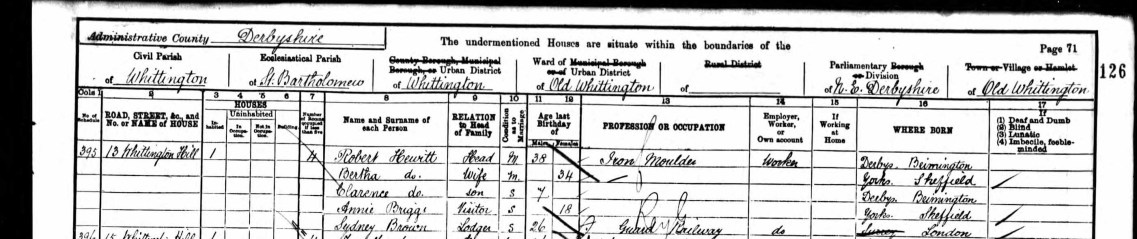 Administrative County Derbyshire
The undermentioned Houses are situate within the boundaries of the
Page 71
126
Civil Parish of Whittington
Ecclesiastical Parish of St. Bartholomew
County Borough, Municipal Borough, or Urban District of Whittington
Ward of Municipal Borough or of Urban District of Old Whittington
Rural District
Parliamentary Borough or Division of N. E. Derbyshire
Town or Village or Hamlet of Old Whittington
Cols 1 2 3 4 5 6 7 8 9 10 11 12 13 14 15 16 17
No. of Schedule
ROAD, STREET, &c., and No. or NAME of HOUSE
HOUSES
Inhabited
Uninhabited
In Occupation
Not in Occupation
Building
Number of Rooms occupied if less than five
Name and Surname of each Person
RELATION to Head of Family
Condition as to Marriage
Age last Birthday of
Males Females
PROFESSION OR OCCUPATION
Employer, Worker, or Own account
If Working at Home
WHERE BORN
If
(1) Deaf and Dumb
(2) Blind
(3) Lunatic
(4) Imbecile, feeble-minded
395 13 Whittington Hill 1 4 Robert Hewitt Head M 38 Iron Moulder Worker Derbys. Brimington
Bertha do. Wife M. 34 Yorks. Sheffield
Clarence do. son S 7 Derbys Brimington
Annie Briggs Visitor S 18 Yorks. Sheffield
Sydney Brown Lodger S 26 Guard Railway do London
396 15 Hill 1